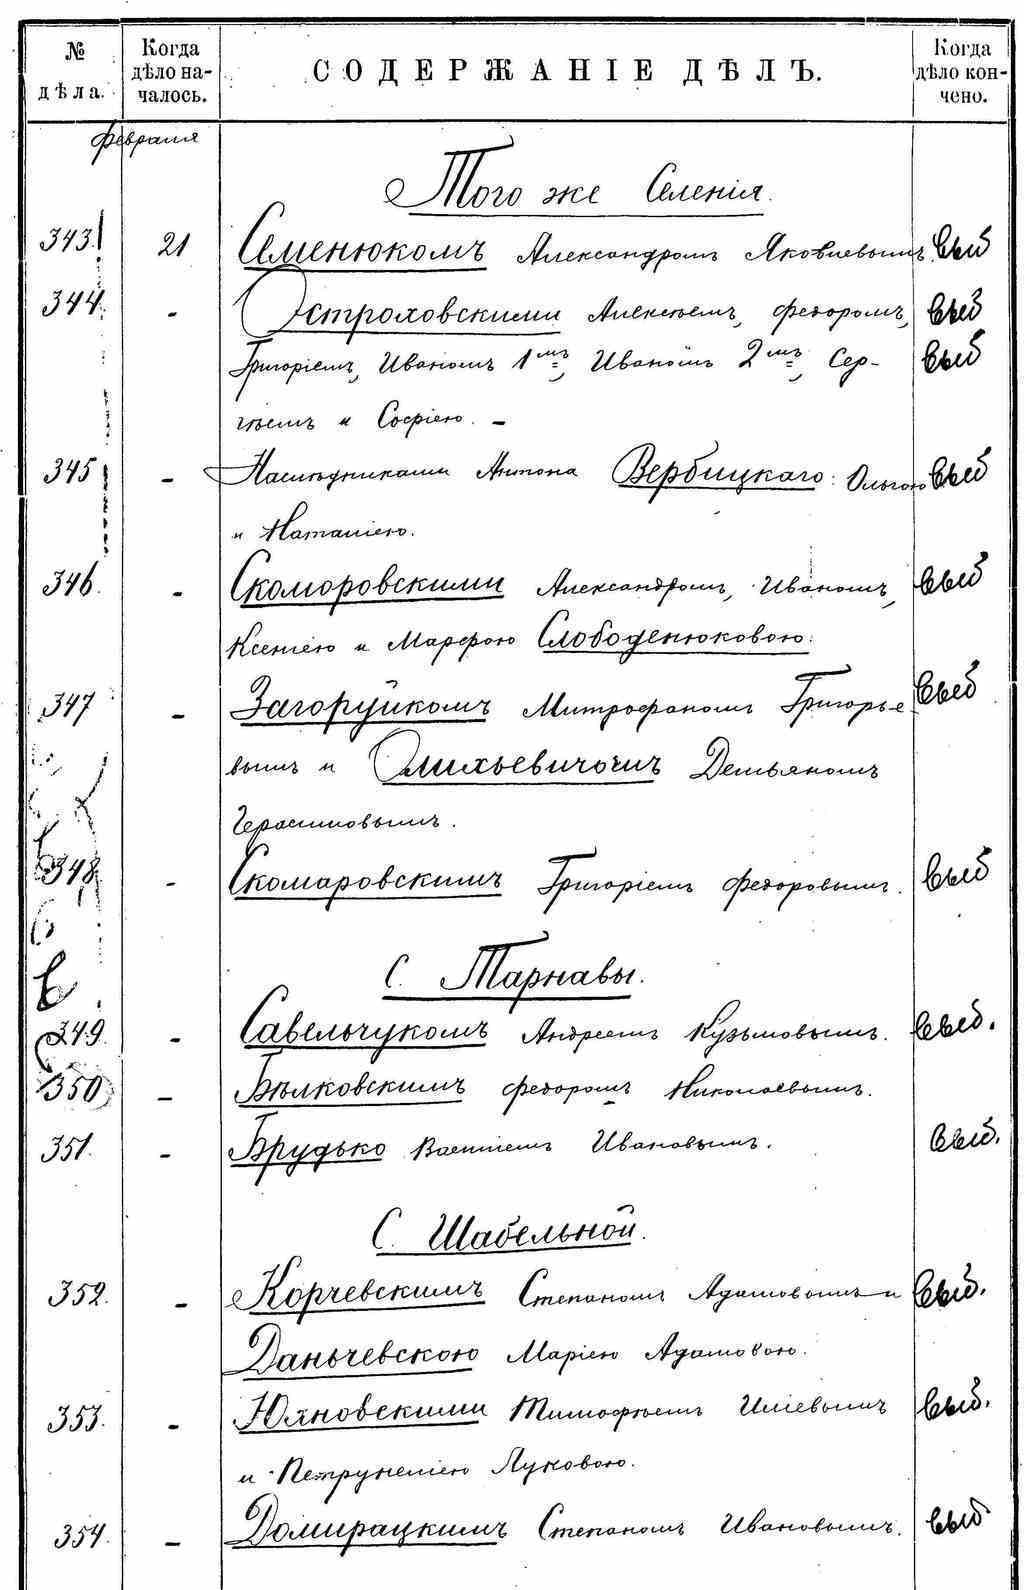 № дѣла. Когда дѣло началось. СОДЕРЖАНІЕ ДѢЛЪ. Когда дѣло кончено.
февраля
Того же Селенія.
343. 21 Семенюкомъ Александромъ Яковлевымъ. выб
344. - Остроховскими Алексѣемъ, Федоромъ, выб
Григоріемъ, Иваномъ 1мъ, Иваномъ 2мъ, Сер- выб
гѣемъ и Софіею. -
345 - Наслѣдниками Антона Вербицкаго: Ольгою выб
и Наталіею.
346. - Скоморовскими Александромъ, Иваномъ, выб
Ксеніею и Марфою Слободенюковою.
347 - Загоруйкомъ Митрофаномъ Григорье- выб
вымъ и Олихьевичомъ Демьяномъ
Герасимовымъ.
348 - Скомаровскимъ Григоріемъ Федоровымъ. выб
С. Тарнавы.
349. - Савельчукомъ Андреемъ Кузьмовымъ. выб.
350 - Бѣлковскимъ Федоромъ Николаевымъ.
351. - Брудько Василіемъ Ивановымъ. выб.
С. Шабельной.
352. - Корчевскимъ Степаномъ Адамовымъ и выб.
Даньчевскою Маріею Адамовою.
353. - Юяновскими Тимофѣемъ Иліевымъ выб.
и Петрунеліею Луковою.
354. - Домирацкимъ Степаномъ Ивановымъ. выб